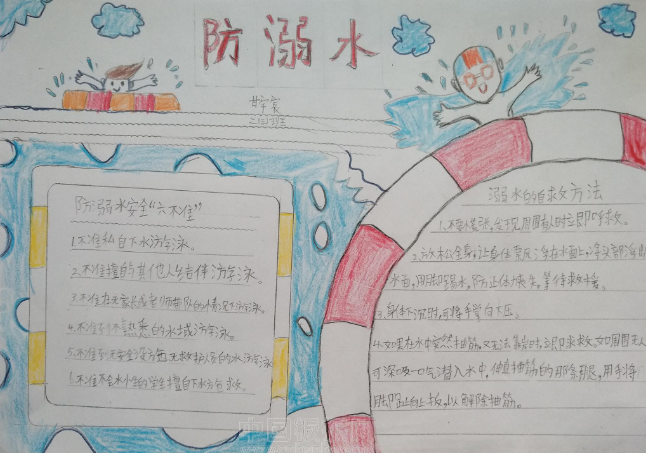 防溺水
二(2)班
防溺水安全"六不准"
1.不准私自下水游泳。
2.不准擅自与其他人结伴游泳。
3.不准在无家长或老师带队的情况下游泳。
4.不准到不熟悉的水域游泳。
5.不准到无安全设施、无救护人员的水域游泳
不准不会水性的学生擅自下水施救。
溺水的自救方法
1.不要慌张,发现周围有人时立即呼救。
2.放松全身,让身体漂浮在水面上,将头部浮出
水面,用脚踢水,防止体力丧失,等待救援。
3.身体下沉时,可将手掌向下压。
4.如果在水中突然抽筋,又无法靠岸时,立即求救。如周围无人
可深吸一口气潜入水中,伸直抽筋的那条腿,用手将
脚趾向上扳,以解除抽筋。